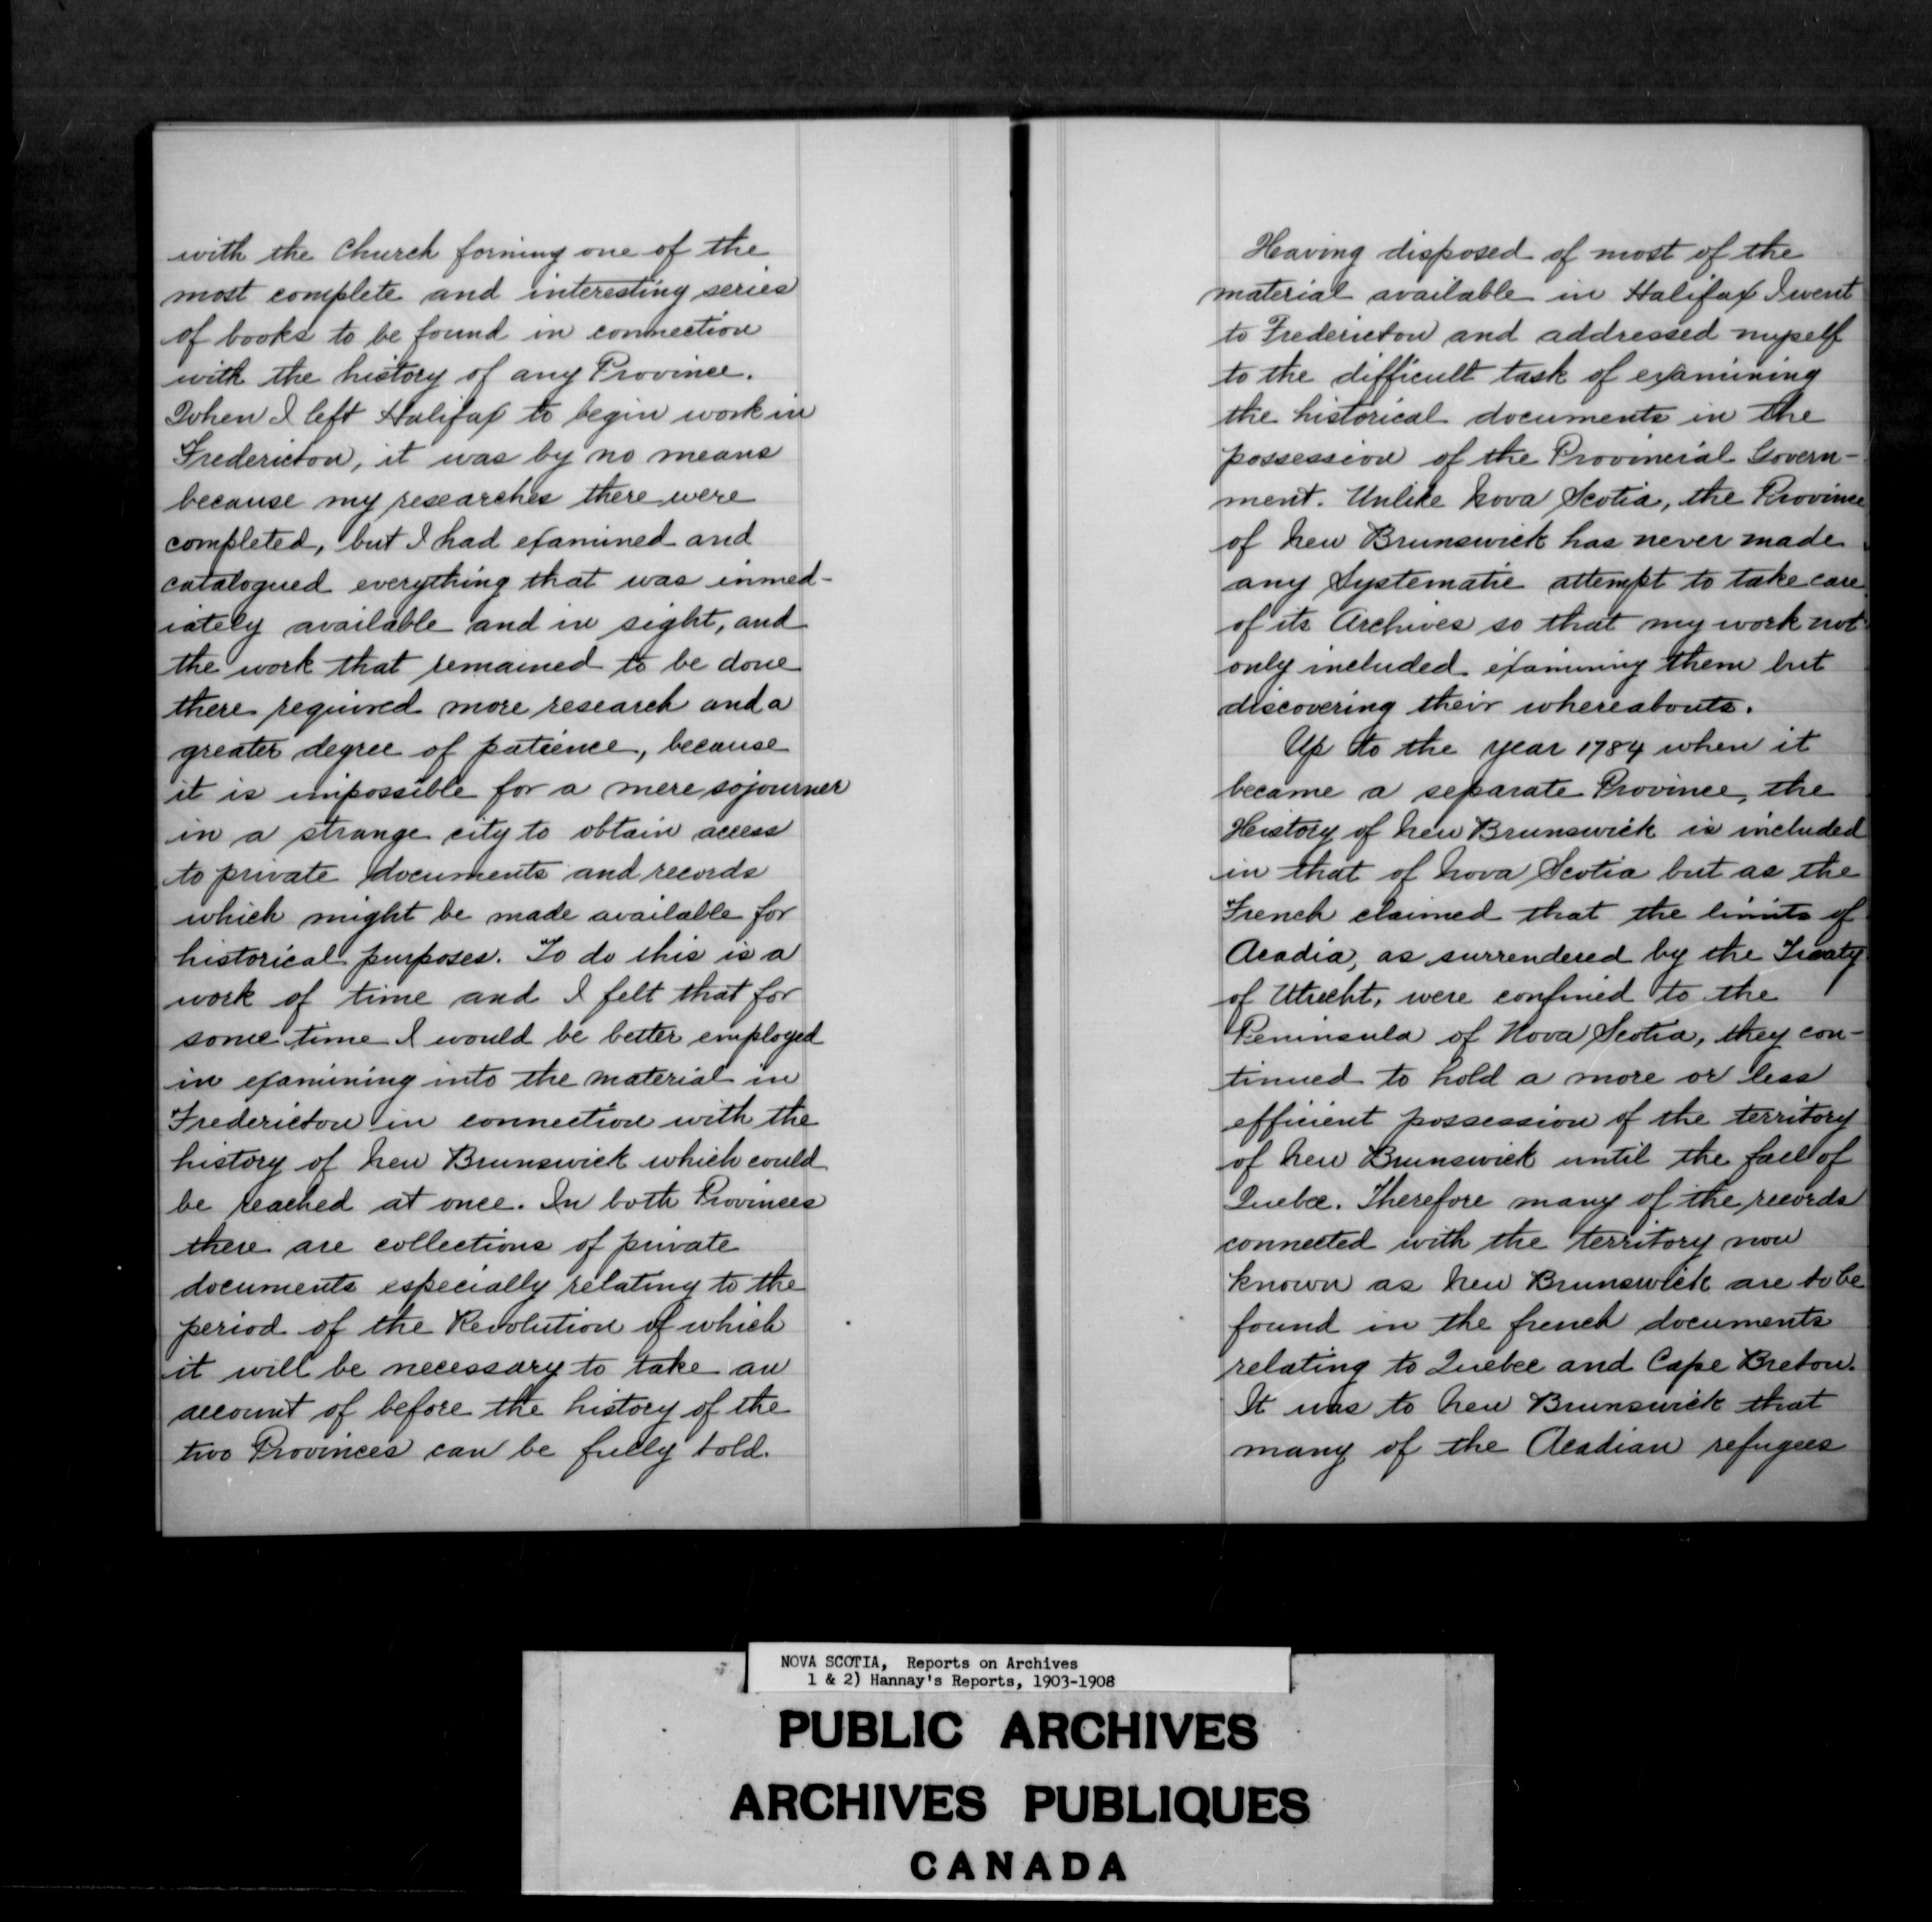 with the Church forming one of the
most complete and interesting series
of books to be found in connection
with the history of any Province.
When I left Halifax to begin work in
Fredericton, it was by no means
because my researches there were
completed, but I had examined and
catalogued everything that was immed-
iately available and in sight, and
the work that remained to be done
there required more research and a
greater degree of patience, because
it is impossible for a mere sojourner
in a strange city to obtain access
to private documents and records
which might be made available for
historical purposes. To do this is a
work of time and I felt that for
some time I would be better employed
in examining into the material in
Fredericton in connection with the
history of New Brunswick which could
be reached at once. In both Provinces
there are collections of private
documents especially relating to the
period of the Revolution of which
it will be necessary to take an
account of before the history of the
two Provinces can be fully told.
Having disposed of most of the
material available in Halifax I went
to Fredericton and addressed myself
to the difficult task of examining
the historical documents in the
possession of the Provincial Govern-
ment. Unlike Nova Scotia, the Province
of New Brunswick has never made
any Systematic attempt to take care
of its Archives so that my work not
only included examining them but
discovering their whereabouts.
Up to the year 1784 when it
became a separate Province, the
History of New Brunswick is included
in that of Nova Scotia but as the
French claimed that the limits of
Acadia, as surrendered by the Treaty
of Utrecht, were confined to the
Peninsula of Nova Scotia, they con-
tinued to hold a more or less
efficient possession of the territory
of New Brunswick until the fall of
Quebec. Therefore many of the records
connected with the territory now
known as New Brunswick are to be
found in the french documents
relating to Quebec and Cape Breton.
It was to New Brunswick that
many of the Acadian refugees
NOVA SCOTIA, Reports on Archives
1 & 2) Hannay's Reports, 1903-1908
PUBLIC ARCHIVES
ARCHIVES PUBLIQUES
CANADA